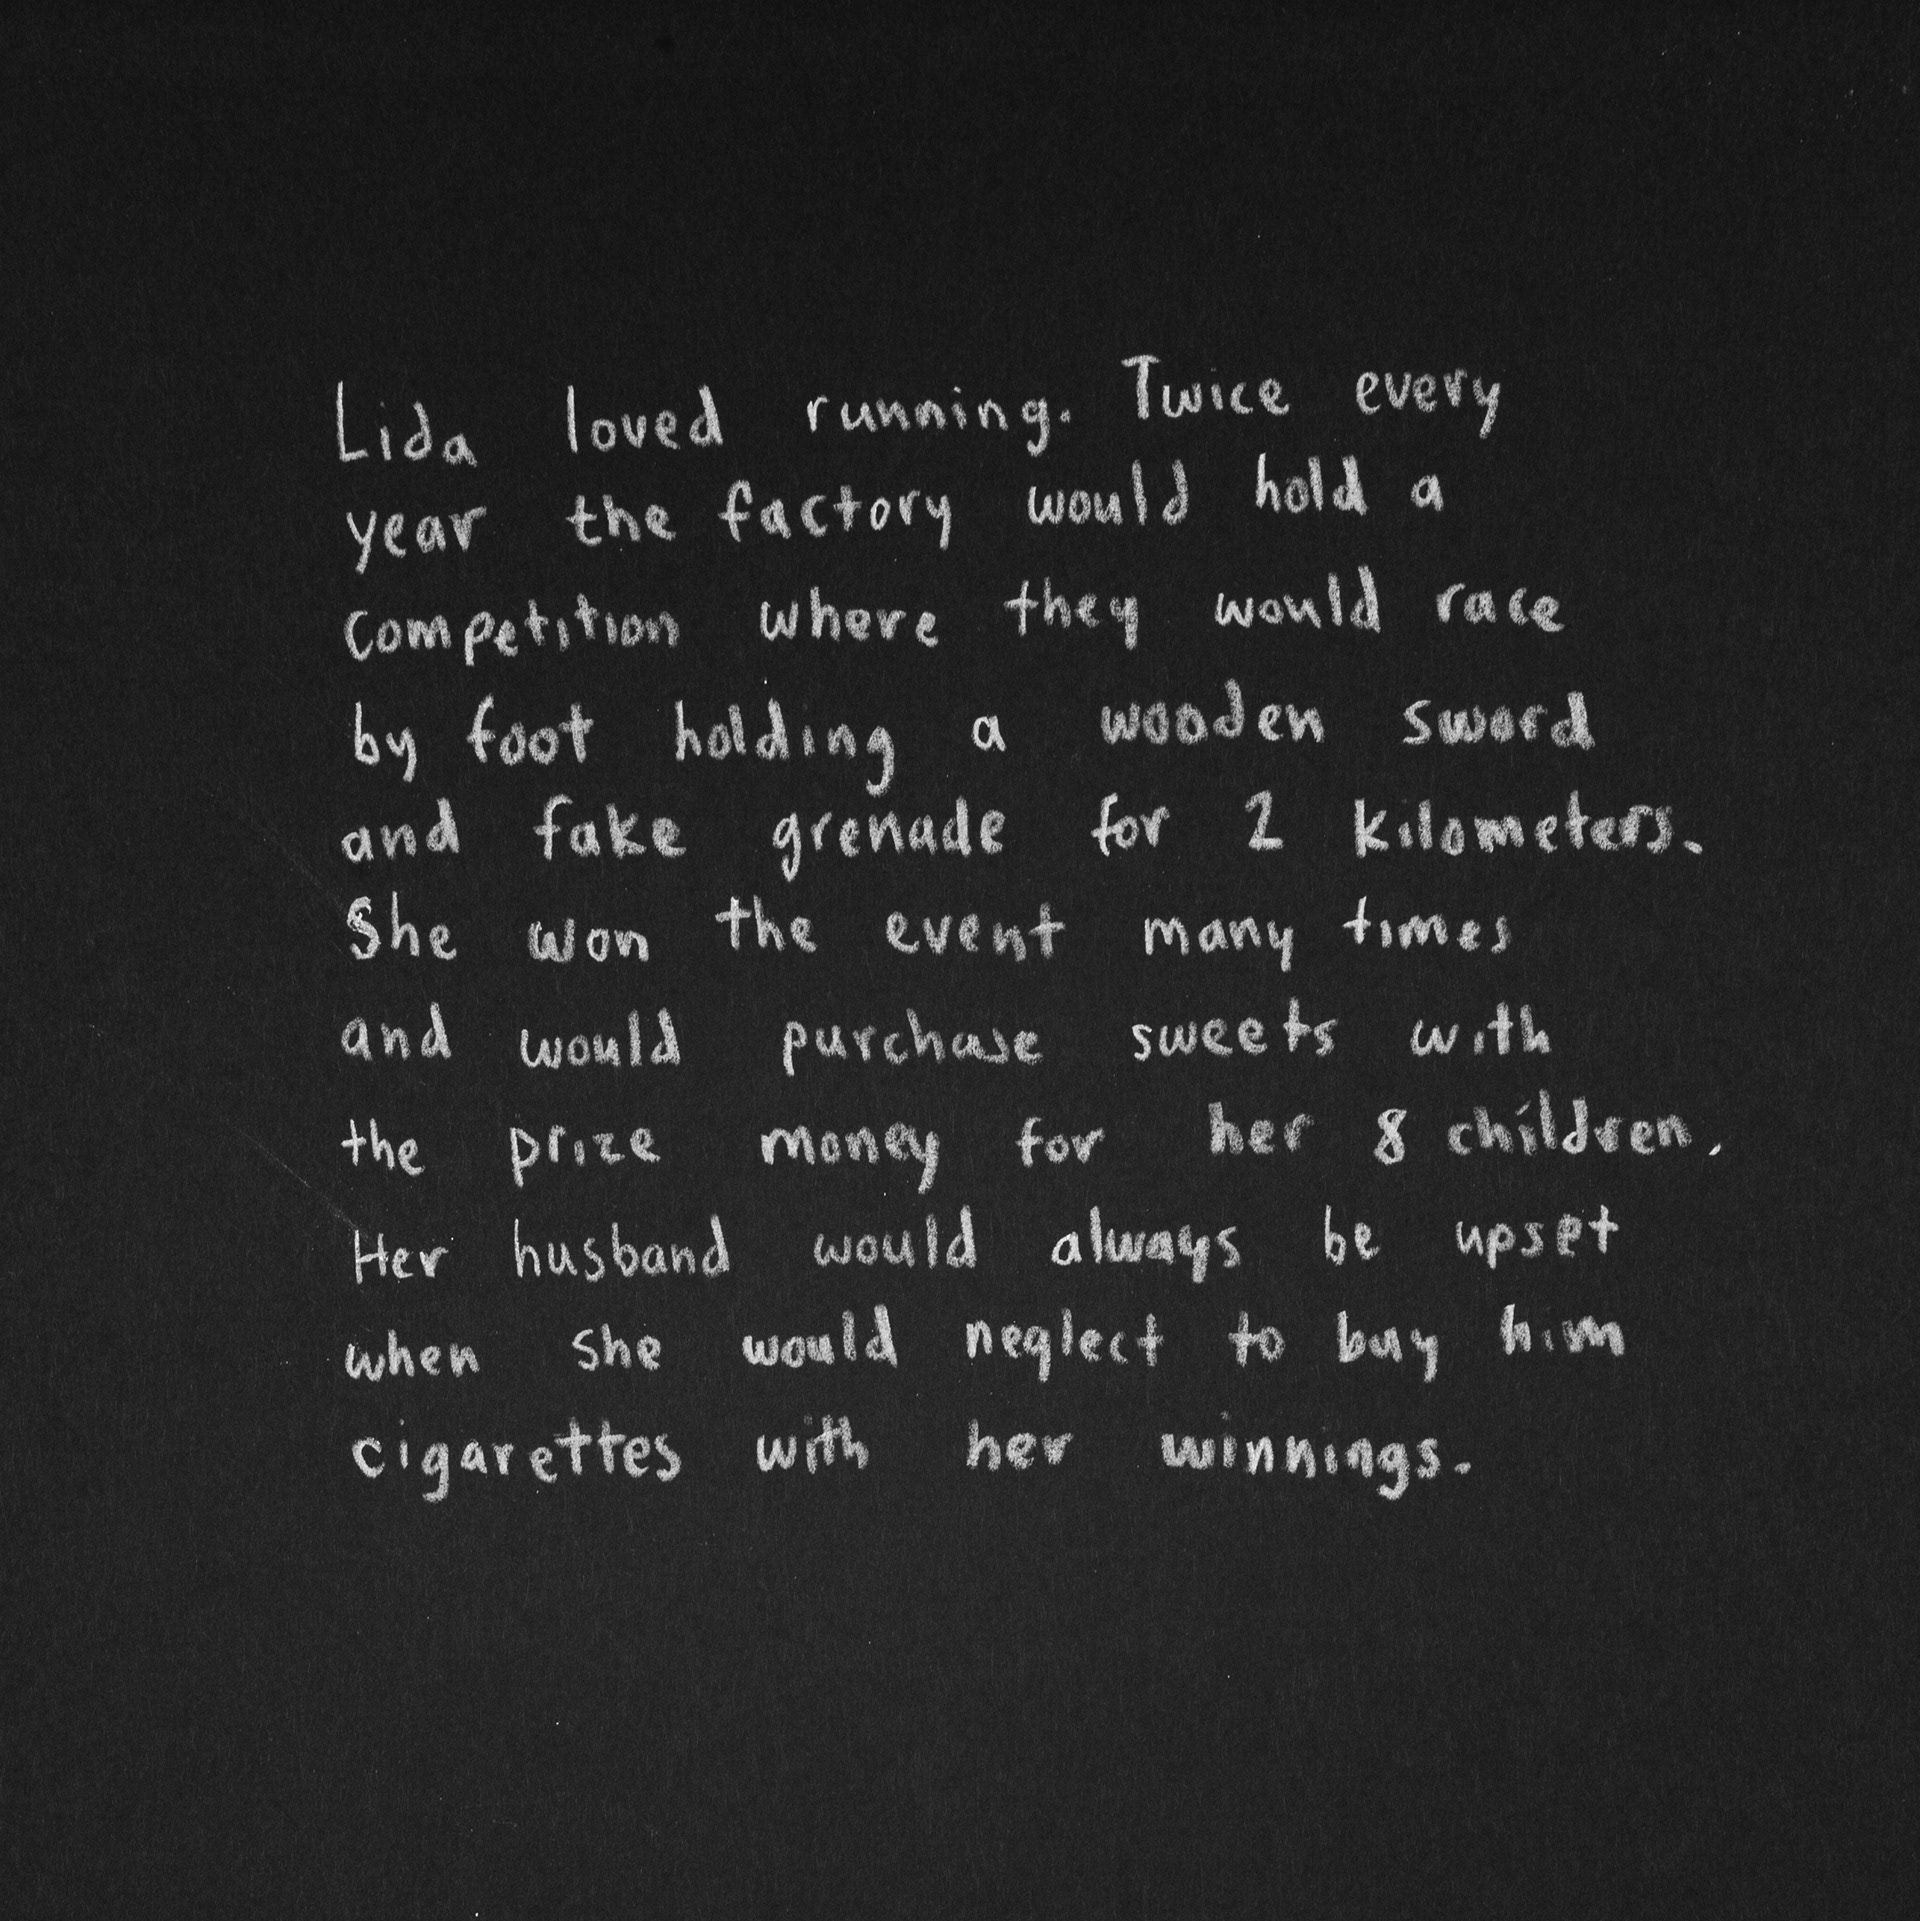 Lida loved running. Twice every
year the factory would hold a
competition where they would race
by foot holding a wooden sword
and fake grenade for 2 kilometers.
She won the event many times
and would purchase sweets with
the prize money for her 8 children.
Her husband would always be upset
when she would neglect to buy him
cigarettes with her winnings.